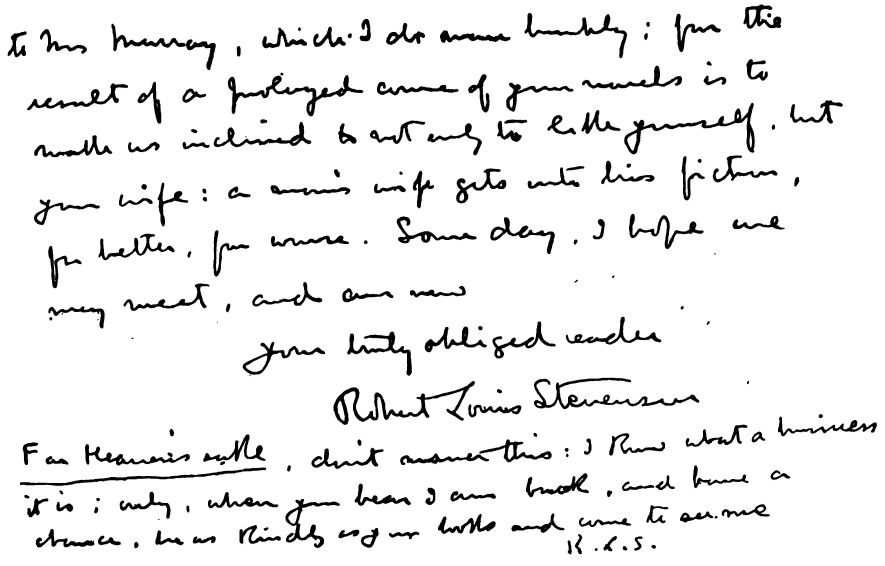 to Mrs Murray, which I do most humbly; for the
result of a prolonged course of your novels is to
make us inclined to not only to like yourself, but
your wife: a man's wife gets into his fiction,
for better, for worse. Some day, I hope we
may meet, and am now
your truly obliged reader
Robert Louis Stevenson
For Heaven's sake, don't answer this: I know what a business
it is; only, when you hear I am back, and have a
chance, be as kindly as your books and come to see me
R.L.S.